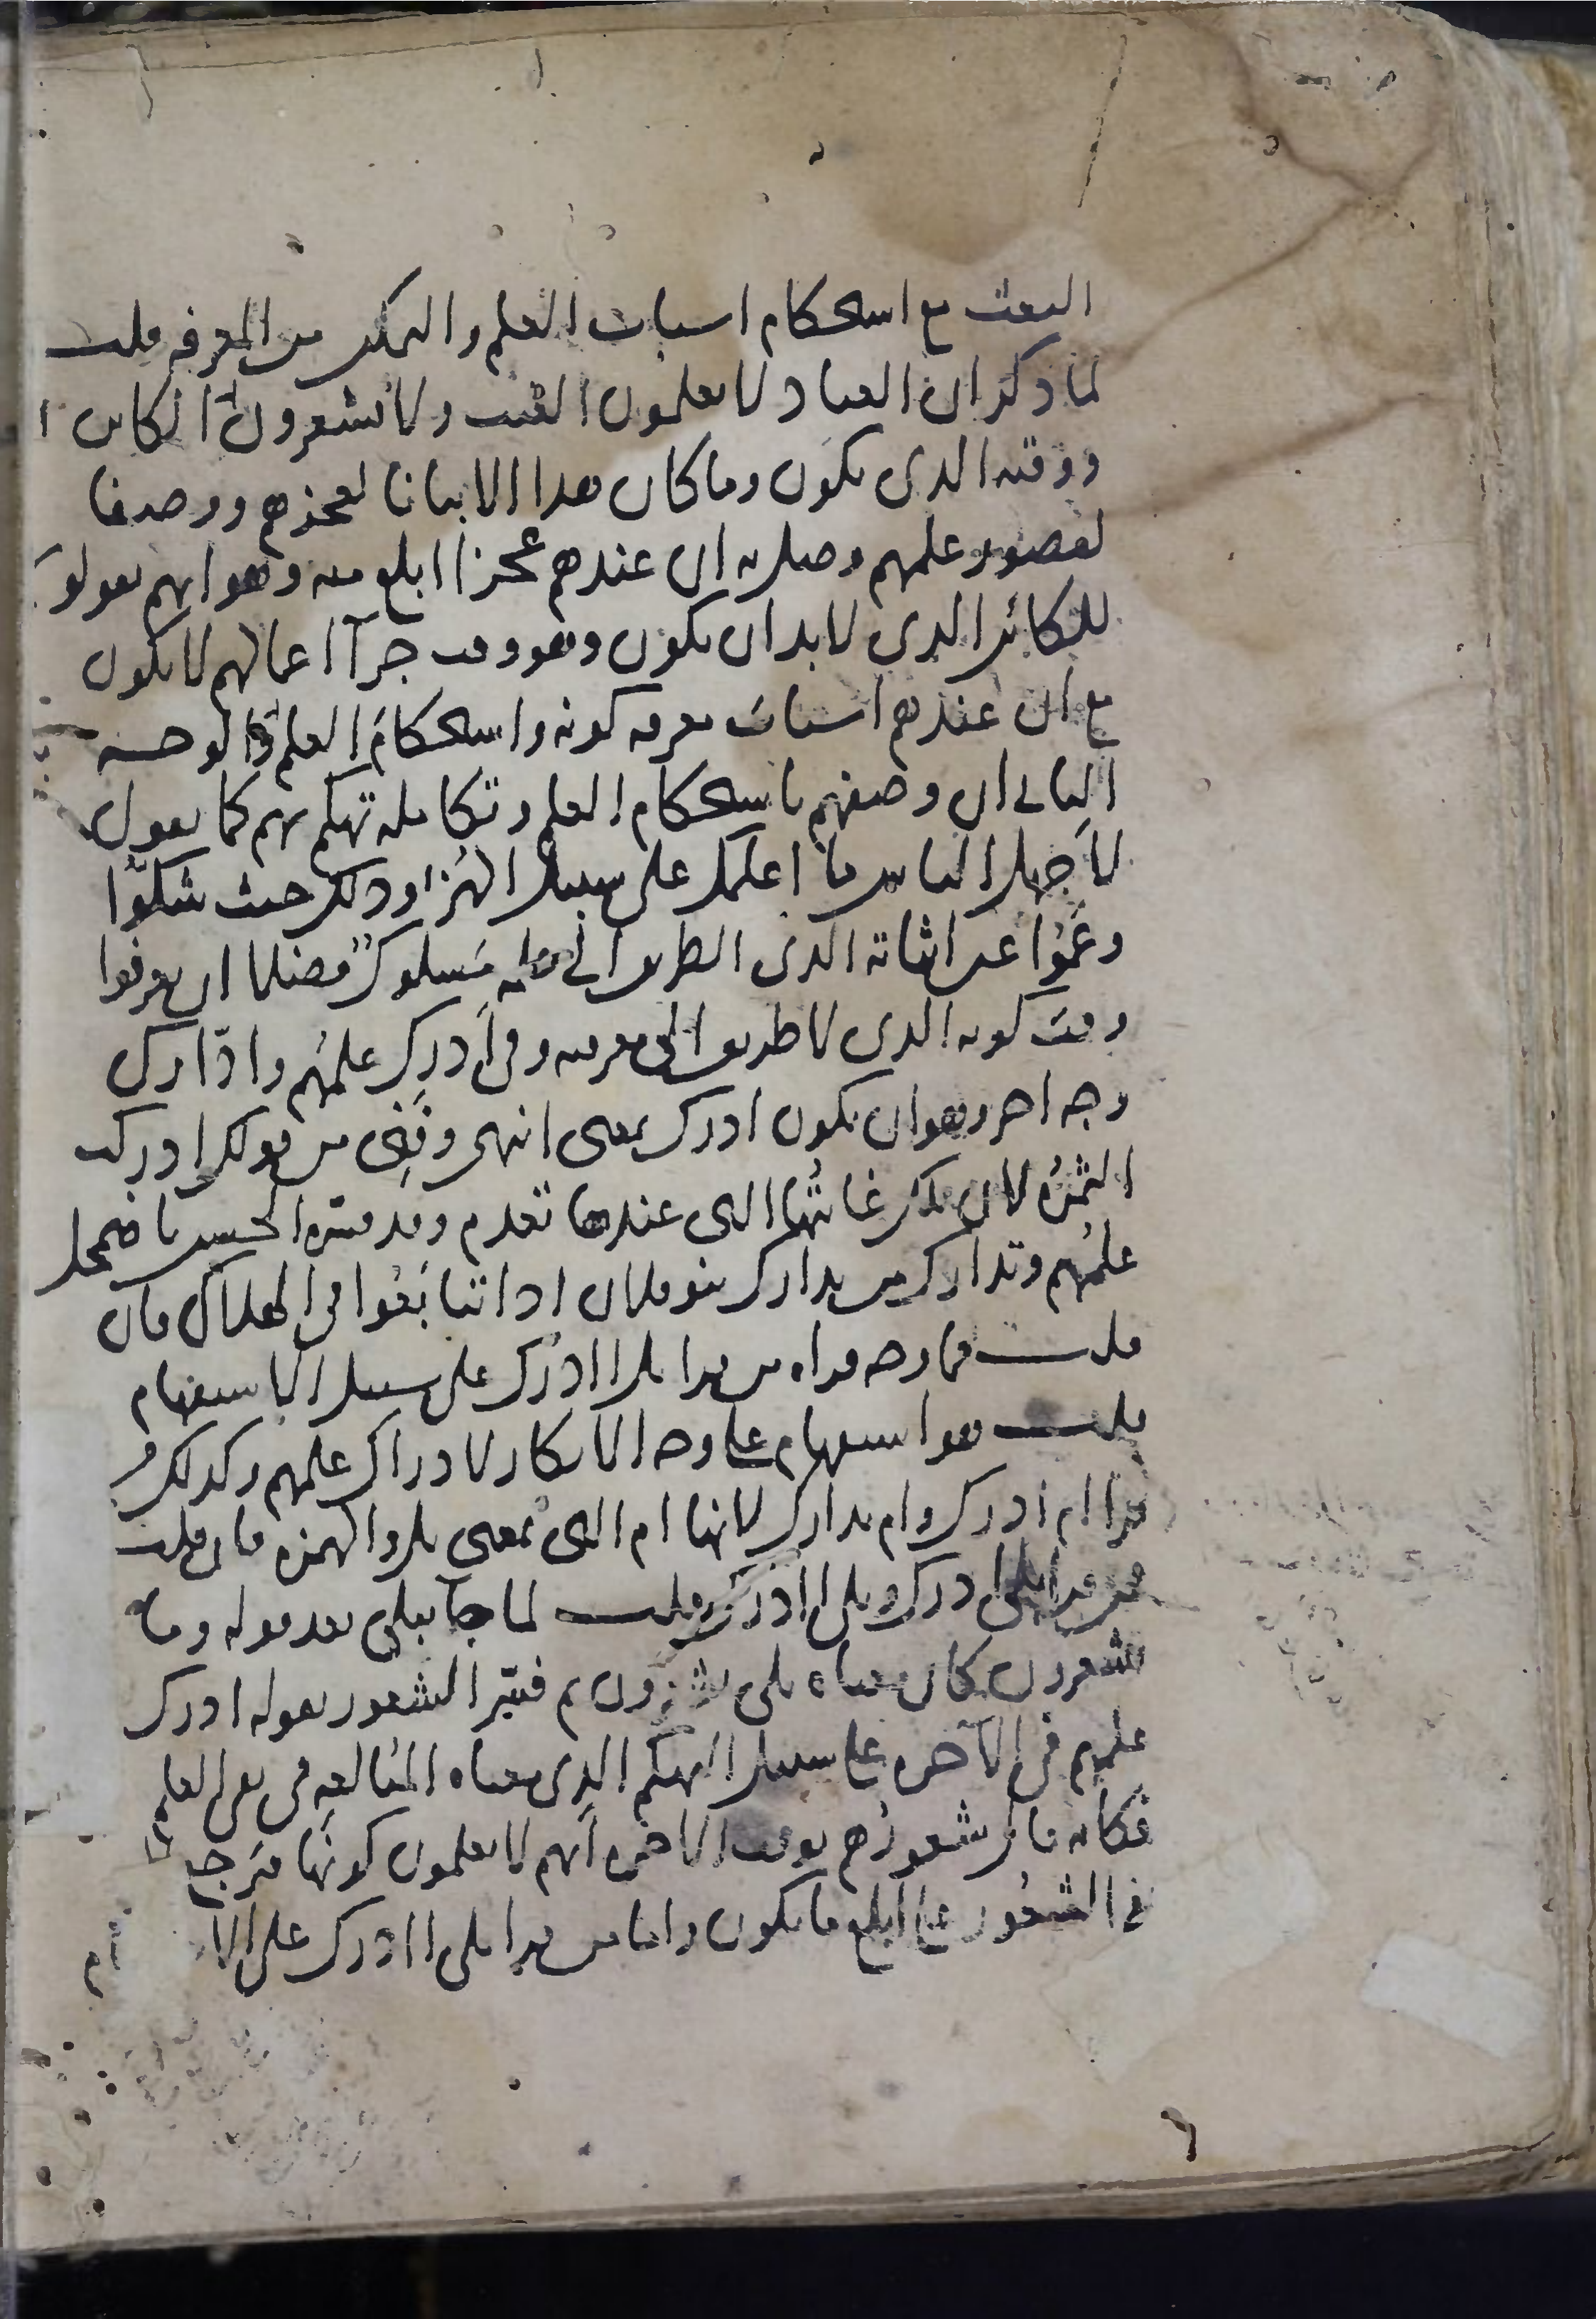 البعث مع استحكام اسباب العلم والتمكن من المعرفه قلت
لما ذكر ان العباد لا يعلمون الغيب ولا يشعرون بالكاين
ووقته الذى يكون وما كان هذا الا بيانا لعجزهم ووصفا
لقصور علمهم وصل به ان عندهم عجزا ابلغ منه وهو انهم يقولون
للكائن الذى لا بد ان يكون وهو وقت جزآ اعمالهم لا يكون
مع ان عندهم اسباب معرفه كونه واستحكام العلم به والوجـــه
الثانى ان وصفهم باستحكام العلم وتكامله تهكم بهم كما يقول
لأجهل الناس ما اعلمك على سبيل الهزا وذلك حيث شكّوا
وعمُوا عن اثباته الذى الطريق الى علمه مسلوك فضلا ان يعرفوا
وقت كونه الذى لا طريق الى معرفته وفى أدرك علمهم وادّارك
وجه اخر وهو ان يكون ادرك بمعنى انتهى وفنى من قولك ادركت
الثمرة لان تلك غايتها التى عندها تعدم وقد فسره الحسن باضمحل
علمهم وتدارك من تدارك بنو فلان اذا تتابعُوا فى الهلاك فان
قلـــت فما وجه قراه من قرا بل اادرك على سبيل الاستفهام
قلـــت هو استفهام على وجه الانكار لادراك علمهم وكذلك من
قرا ام ادرك وام تدارك لانها ام التى بمعنى بل والهمزه فان قلت
فمن قرا بلى ادرك وبلى اادرك قلـــت لما جا ببلى بعد قوله وما
يشعرون كان معناه بلى يشعرون ثم فسّر الشعور بقوله ادرك
علمهم فى الآخره على سبيل التهكم الذى معناه المُبالغه فى نفى العلم
فكانه قال شعورُهم بوقت الاخره أنهم لا يعلمون كونها فيرجع
فى الشعُور على ابلغ ما يكون واما من قرا بلى اادرك على الا